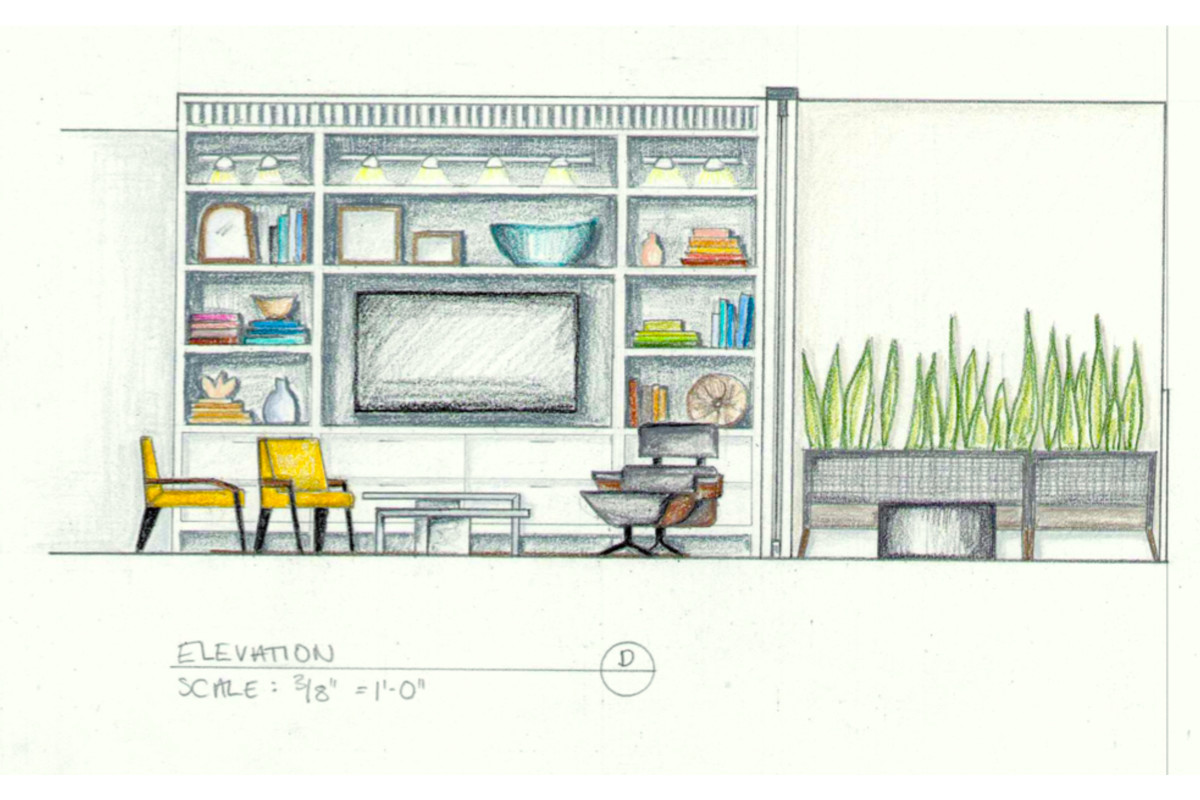 ELEVATION
D
SCALE: 3/8" = 1'-0"